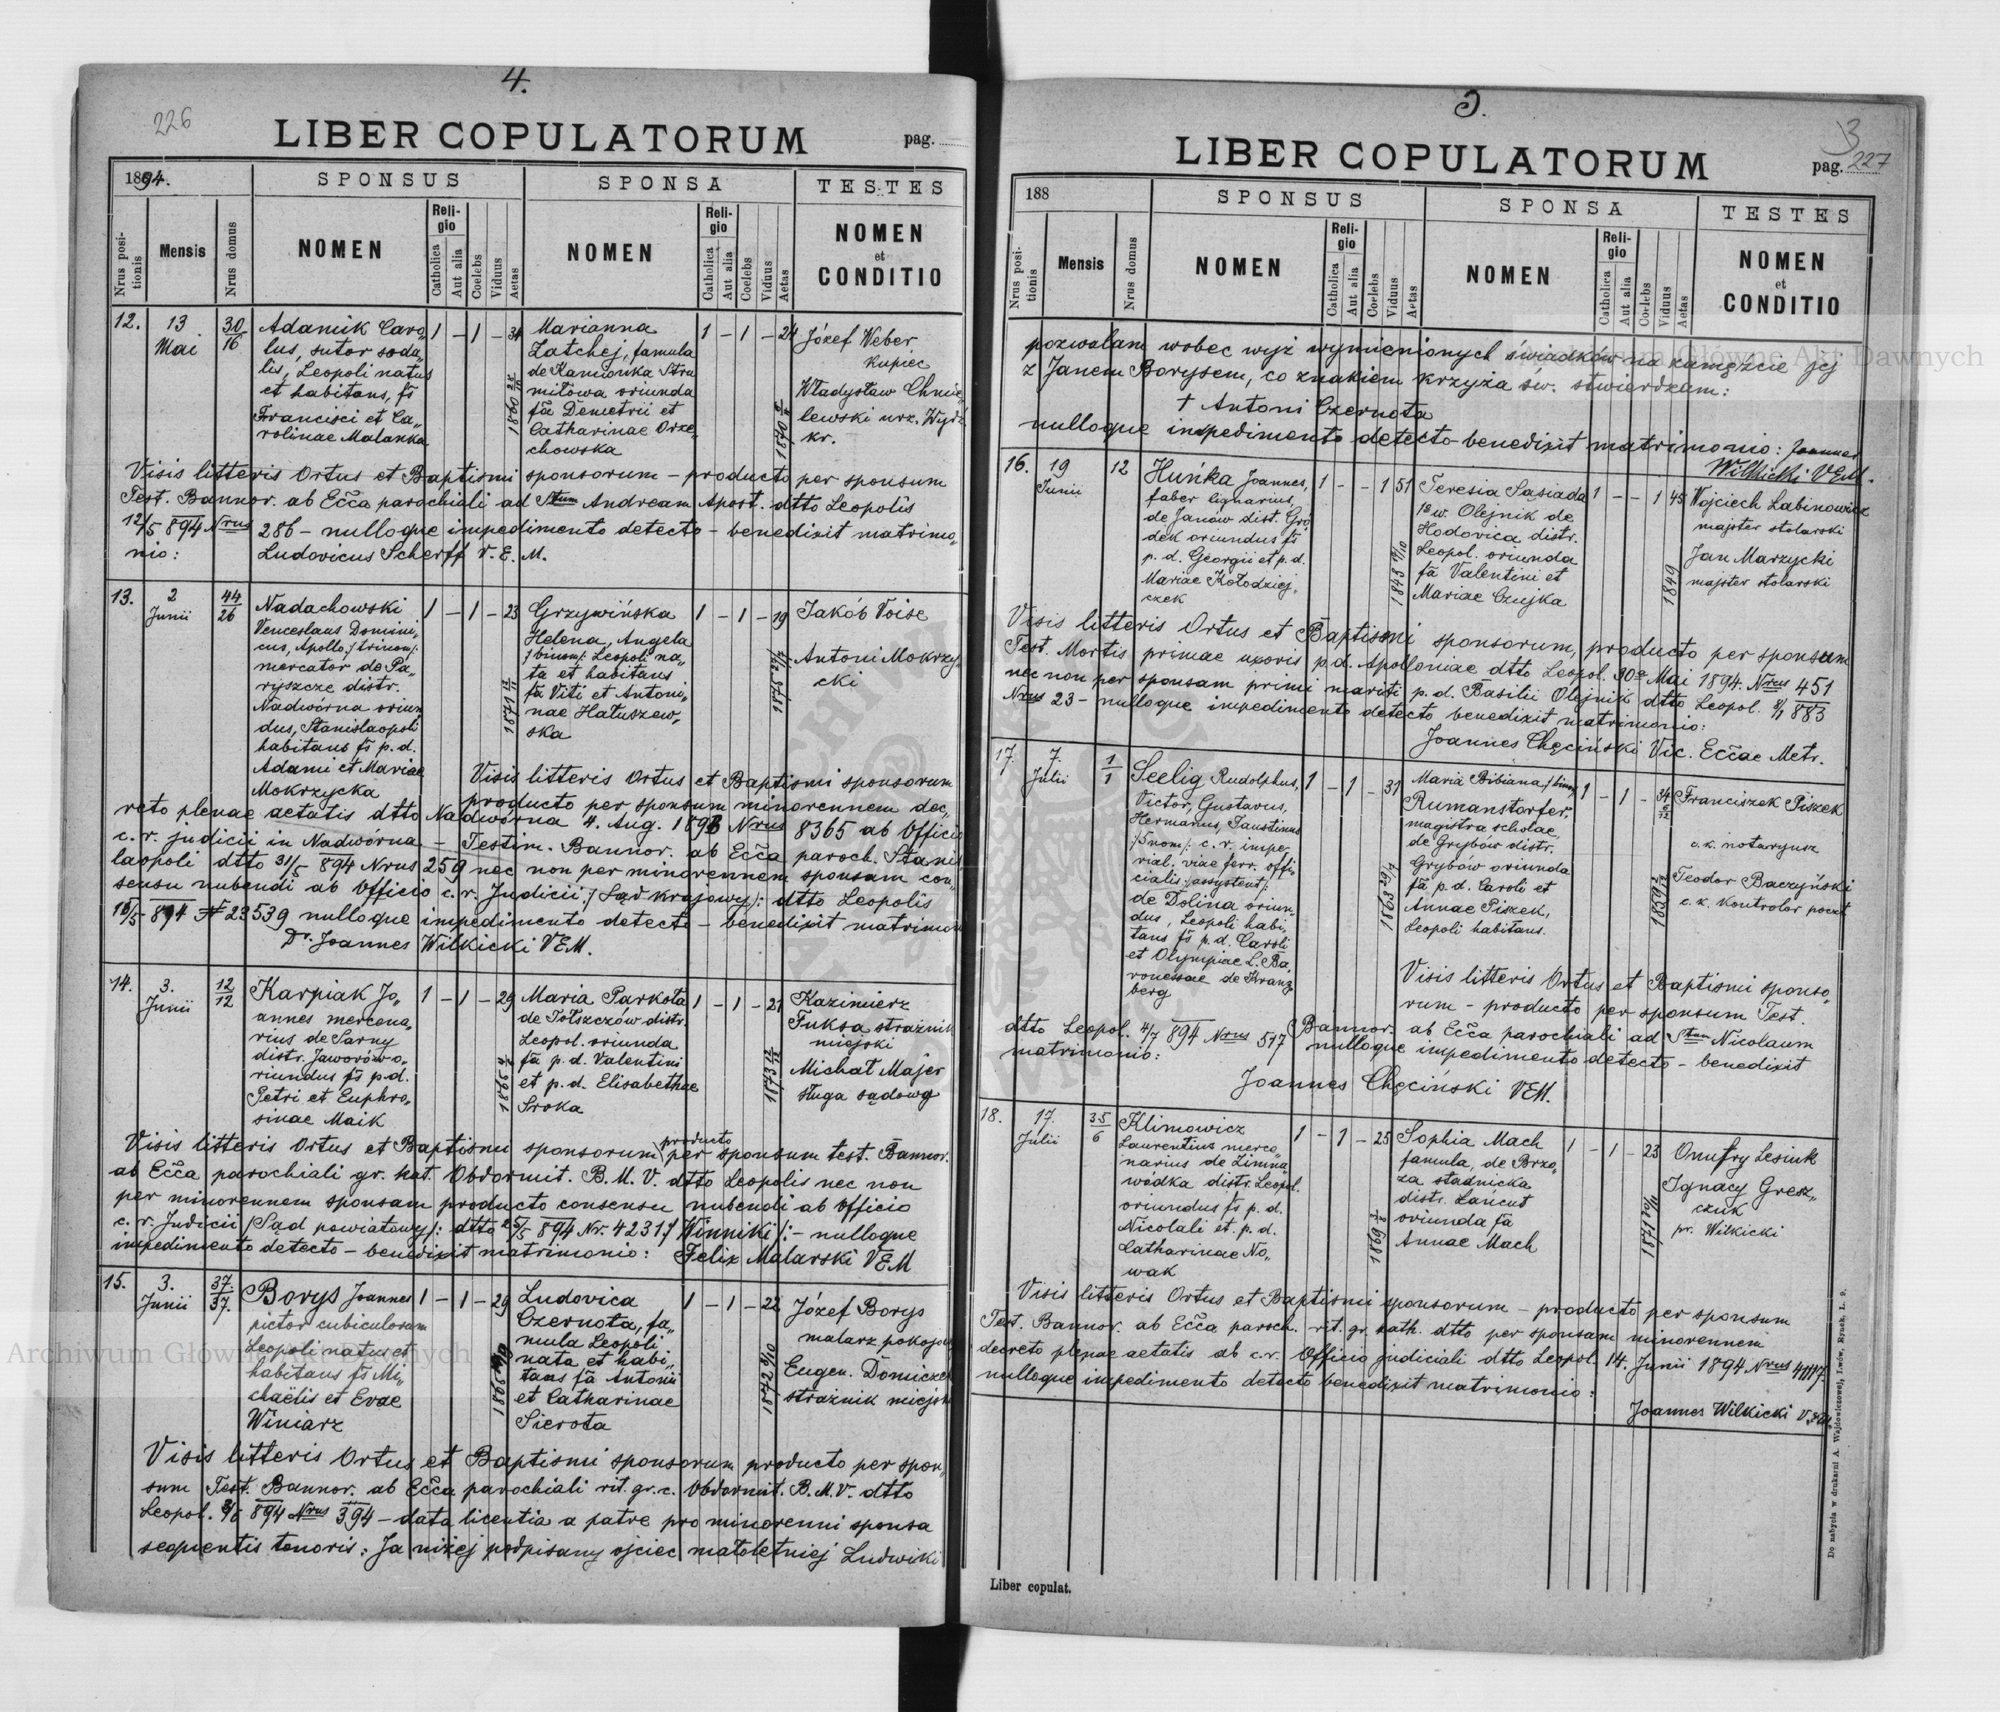 4.
226
LIBER COPULATORUM
pag.
1894.
SPONSUS
SPONSA
TESTES
Nrus positionis
Mensis
Nrus domus
NOMEN
Religio
Catholica
Aut alia
Coelebs
Viduus
Aetas
NOMEN
Religio
Catholica
Aut alia
Coelebs
Viduus
Aetas
NOMEN
et
CONDITIO
12.
13
Mai
30
16
Adamik Caro„
lus, sutor soda„
lis, Leopoli natus
et habitans, fs
Francisci et Ca„
rolinae Malanka
1 – 1 – 34
Marianna
Zatchej, famula
de Kamionka Stru
mitowa oriunda
fa Demetrii et
Catharinae Orze„
chowska
1 – 1 – 24
Józef Weber
kupiec
Władysław Chmie„
lewski urz. Wydz
kr.
Visis litteris Ortus et Baptismi sponsorum – producto per sponsum
Test. Bannor. ab Ecĉa parochiali ad Stum Andream Apost. dtto Leopolis
12/5 894 Nrus 286 – nulloque impedimento detecto – benedixit matrimo„
nio: Ludovicus Scherff V. E. M.
13.
2
Junii
44
26
Nadachowski
Venceslaus Domini„
cus, Apollo /: trinom:/
mercator de Pa„
ryszcze distr.
Nadwórna oriun
dus, Stanislaopoli
habitans fs p. d.
Adami et Mariae
Mokrzycka
1 – 1 – 23
Grzywińska
Helena, Angela
/:binom:/ Leopoli na„
ta et habitans
fa Viti et Antoni„
nae Hatuszew„
ska
1 – 1 – 19
Jakób Voise
Antoni Mokrzy
cki
Visis litteris Ortus et Baptismi sponsorum
producto per sponsum minorennem dec„
reto plenae aetatis dtto Nadwórna 4. Aug. 1893 Nrus 8365 ab Officio
c. r. judicii in Nadwórna – Testim. Bannor. ab Ecĉa paroch. Stanis
laopoli dtto 31/5 894 Nrus 259 nec non per minorennem sponsam con„
sensu nubendi ab Officio c. r. Judicii /: Sąd krajowy:/ dtto Leopolis
16/5 894 # 23539 nulloque impedimento detecto – benedixit matrimon
Dr. Joannes Wilkicki VEM.
14.
3.
Junii
12
12
Karpiak Jo„
annes mercena„
rius de Sarny
distr. Jaworów o„
riundus fs p. d.
Petri et Euphro„
sinae Maik
1 – 1 – 29
Maria Parkota
de Tołszczów distr.
Leopol. oriunda
fa p. d. Valentini
et p. d. Elisabethae
Sroka
1 – 1 – 21
Kazimierz
Fuksa strażnik
miejski
Michał Majer
sługa sądowy
Visis litteris Ortus et Baptismi sponsorum producto per sponsum test. Bannor.
ab Ecĉa parochiali gr. kat. Obdormit. B. M. V. dtto Leopolis nec non
per minorennem sponsam producto consensu nubendi ab Officio
c. r. Judicii /Sąd powiatowy/: dtto 25/5 894 Nr. 4231 /: Winniki/: – nulloque
impedimento detecto – benedixit matrimonio: Felix Malarski VEM
15.
3.
Junii
37.
37.
Borys Joannes
pictor cubiculorum
Leopoli natus et
habitans fs Mi„
chaëlis et Evae
Winiarz
1 – 1 – 29
Ludovica
Czernota, fa„
mula Leopoli
nata et habi„
tans fa Antonii
et Catharinae
Sierota
1 – 1 – 22
Józef Borys
malarz pokojow
Eugen. Domiczek
strażnik miejsk
Visis litteris Ortus et Baptismi sponsorum producto per spon„
sum Test. Bannor. ab Ecĉa parochiali rit. gr. c. Obdormit. B. M. V. dtto
Leopol. 894 Nrus 394 – data licentia a patre pro minorenni sponsa
sequentis tenoris: Ja niżej podpisany ojciec małoletniej Ludwiki
5.
3
LIBER COPULATORUM
pag. 227
188
SPONSUS
SPONSA
TESTES
Nrus positionis
Mensis
Nrus domus
NOMEN
Religio
Catholica
Aut alia
Coelebs
Viduus
Aetas
NOMEN
Religio
Catholica
Aut alia
Coelebs
Viduus
Aetas
NOMEN
et
CONDITIO
pozwalam wobec wyż wymienionych świadków na zamęźcie jej
z Janem Borysem, co znakiem krzyża św. stwierdzam:
† Antoni Czernota
nulloque impedimento detecto benedixit matrimonio: Joannes
Wilkicki VEM.
16.
19
Junii
12
Huńka Joannes,
faber lignarius,
de Janów dist. Gró„
dek oriundus fs
p. d. Georgii et p. d.
Mariae Kołodziej„
czek
1 – – 1 51
Teresia Sąsiada
1o w. Olejnik de
Hodovica distr.
Leopol. oriunda
fa Valentini et
Mariae Czujka
1 – – 1 45
1849
Wojciech Labinowicz
majster stolarski
Jan Marzycki
majster stolarski
Visis litteris Ortus et Baptismi sponsorum, producto per sponsum
Test. Mortis primae uxoris p. d. Apolloniae dtto Leopol. 30a Mai 1894 Nrus 451
nec non per sponsam primi mariti p. d. Basilii Olejnik dtto Leopol. 8/1 883
Nrus 23 – nulloque impedimento detecto benedixit matrimonio:
Joannes Chęciński Vic. Ecĉae Metr.
17.
7.
Julii
1
1
Seelig Rudolphus,
Victor, Gustavus,
Hermanus, Faustinus
/:5nom:/ c. r. impe„
rial. viae ferr. offi„
cialis /:assystent/:
de Dolina oriun„
dus, Leopoli habi„
tans fs p. d. Caroli
et Olympiae L. Ba„
ronessae de Kranz
berg
1 – 1 – 31
Maria Bibiana /:binom
Rumanstorfer
magistra scholae,
de Grybów distr.
Grybów oriunda
fa p. d. Caroli et
Annae Piszek,
Leopoli habitans.
1 – 1 – 34
Franciszek Piszek
c. k. notaryusz
Teodor Baczyński
c. k. kontrolor poczt
Visis litteris Ortus et Baptismi sponso„
rum – producto per sponsum Test.
Bannor. ab Ecĉa parochiali ad Stum Nicolaum
dtto Leopol. 4/7 894 Nrus 577 nulloque impedimento detecto – benedixit
matrimonio:
Joannes Chęciński VEM.
18.
17.
Julii
35
6
Klimowicz
Laurentius merce„
narius de Zimna„
wódka distr. Leopol.
oriundus fs p. d.
Nicolali et p. d.
Catharinae No„
wak
1 – 1 – 25
Sophia Mach
famula, de Brzo„
za stadnicka
distr. Łańcut
oriunda fa
Annae Mach
1 – 1 – 23
Onufry Lesiuk
Ignacy Gresz„
czuk
pr. Wilkicki
Visis litteris Ortus et Baptismi sponsorum – producto per sponsum
Test. Bannor. ab Ecĉa paroch. rit. gr. kath. dtto per sponsam minorennem
decreto plenae aetatis ab c. r. Officio judiciali dtto Leopol. 14. Junii 1894 Nrus
nulloque impedimento detecto benedixit matrimonio:
Joannes Wilkicki V.EM.
Liber copulat.
Do nabycia w drukarni A. Wajdowiczowej, Lwów, Rynek, L. 9.
Archiwum Główne Akt Dawnych
Archiwum Główne Akt Dawnych